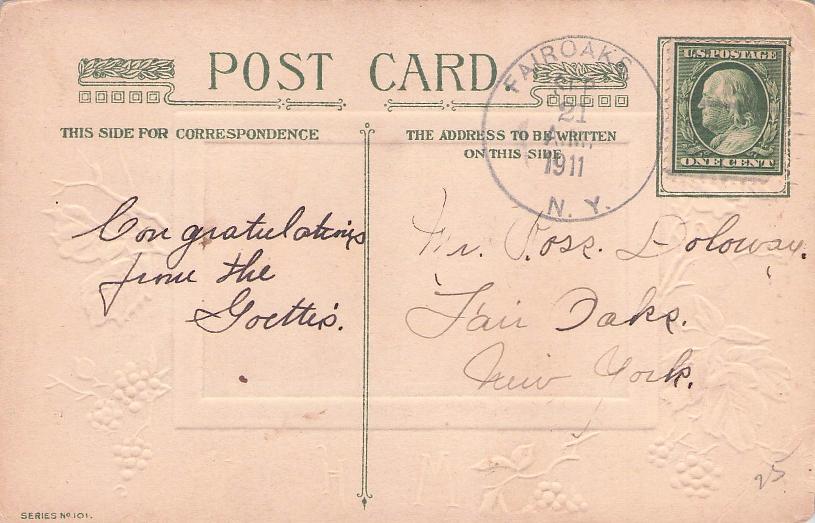 POST CARD
THIS SIDE FOR CORRESPONDENCE
THE ADDRESS TO BE WRITTEN
ON THIS SIDE
FAIROAKS
SEP
21
A.M.
1911
N. Y.
U.S. POSTAGE
ONE CENT
Congratulations
from the
Goettes.
Mr. Ross. Doloway.
Fair Oaks.
New York.
25
SERIES No. 101.